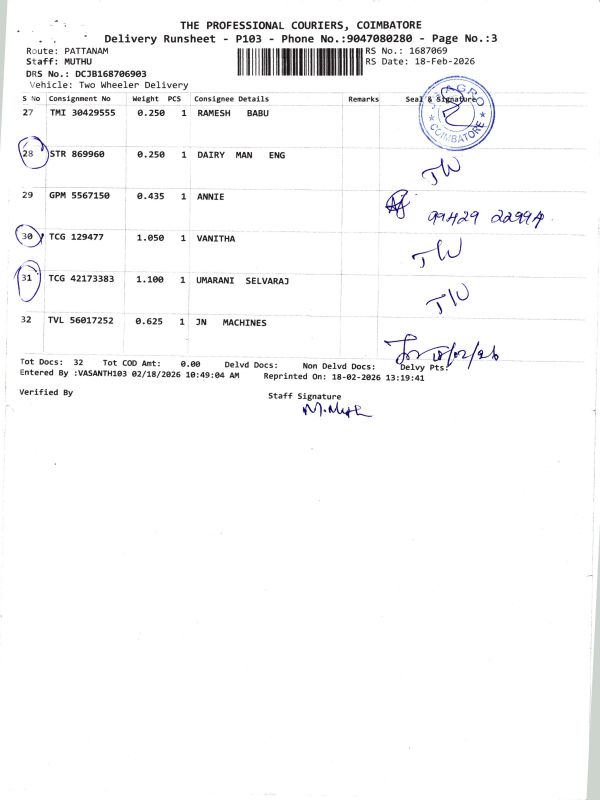 THE PROFESSIONAL COURIERS, COIMBATORE
Delivery Runsheet - P103 - Phone No.:9047080280 - Page No.:3
Route: PATTANAM RS No.: 1687069
Staff: MUTHU RS Date: 18-Feb-2026
DRS No.: DCJB168706903
Vehicle: Two Wheeler Delivery
S No Consignment No Weight PCS Consignee Details Remarks Seal & Signature
27 TMI 30429555 0.250 1 RAMESH BABU
AGRO COIMBATORE
28 STR 869960 0.250 1 DAIRY MAN ENG
TW
29 GPM 5567150 0.435 1 ANNIE
99429 22994
30 TCG 129477 1.050 1 VANITHA
TW
31 TCG 42173383 1.100 1 UMARANI SELVARAJ
TW
32 TVL 56017252 0.625 1 JN MACHINES
18/02/26
Tot Docs: 32 Tot COD Amt: 0.00 Delvd Docs: Non Delvd Docs: Delvy Pts:
Entered By :VASANTH103 02/18/2026 10:49:04 AM Reprinted On: 18-02-2026 13:19:41
Verified By Staff Signature